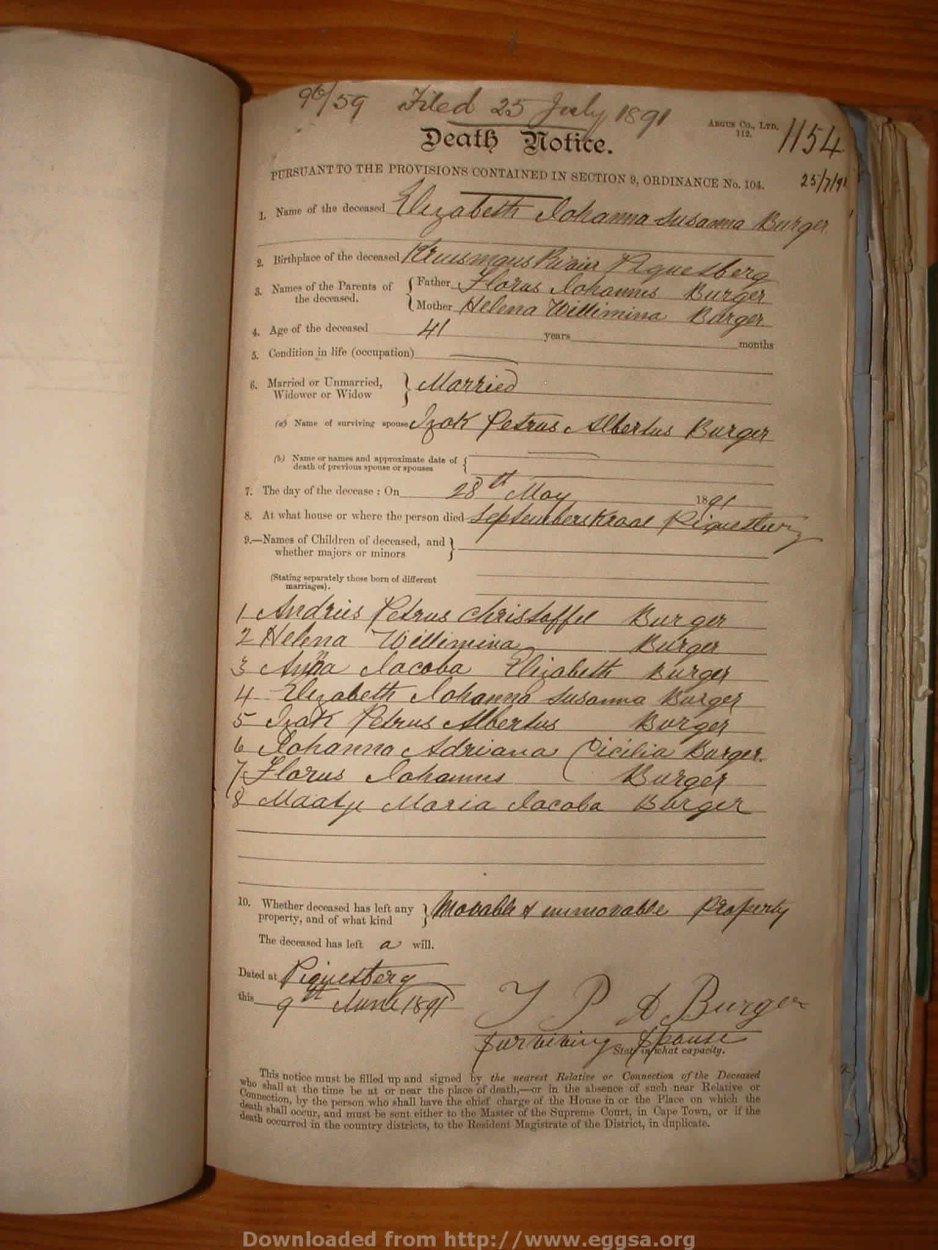 96/59 Filed 25 July 1891
ARGUS CO., LTD.
112.
1154
25/7/91
Death Notice.
PURSUANT TO THE PROVISIONS CONTAINED IN SECTION 9, ORDINANCE No. 104.
1. Name of the deceased Elizabeth Johanna Susanna Burger
2. Birthplace of the deceased Piquetberg
3. Names of the Parents of the deceased. { Father Florus Johannis Burger
{ Mother Helena Willimina Burger
4. Age of the deceased 41 years months
5. Condition in life (occupation)
6. Married or Unmarried, Widower or Widow } Married
(a) Name of surviving spouse Izak Petrus Albertus Burger
(b) Name or names and approximate date of death of previous spouse or spouses {
7. The day of the decease : On 28th May 1891
8. At what house or where the person died Septemberskraal Piquetberg
9.—Names of Children of deceased, and whether majors or minors }
(Stating separately those born of different marriages).
1 Andries Petrus Christoffel Burger
2 Helena Willimina Burger
3 Anna Jacoba Elizabeth Burger
4 Elizabeth Johanna Susanna Burger
5 Izak Petrus Albertus Burger
6 Johanna Adriana Cicilia Burger.
7 Florus Johannis Burger
8 Maatje Maria Jacoba Burger
10. Whether deceased has left any property, and of what kind } Movable & immovable Property
The deceased has left a will.
Dated at Piquetberg
this 9th June 1891
I P A Burger
Surviving Spouse
State in what capacity.
This notice must be filled up and signed by the nearest Relative or Connection of the Deceased
who shall at the time be at or near the place of death,—or in the absence of such near Relative or
Connection, by the person who shall have the chief charge of the House in or the Place on which the
death shall occur, and must be sent either to the Master of the Supreme Court, in Cape Town, or if the
death occurred in the country districts, to the Resident Magistrate of the District, in duplicate.
Downloaded from http://www.eggsa.org